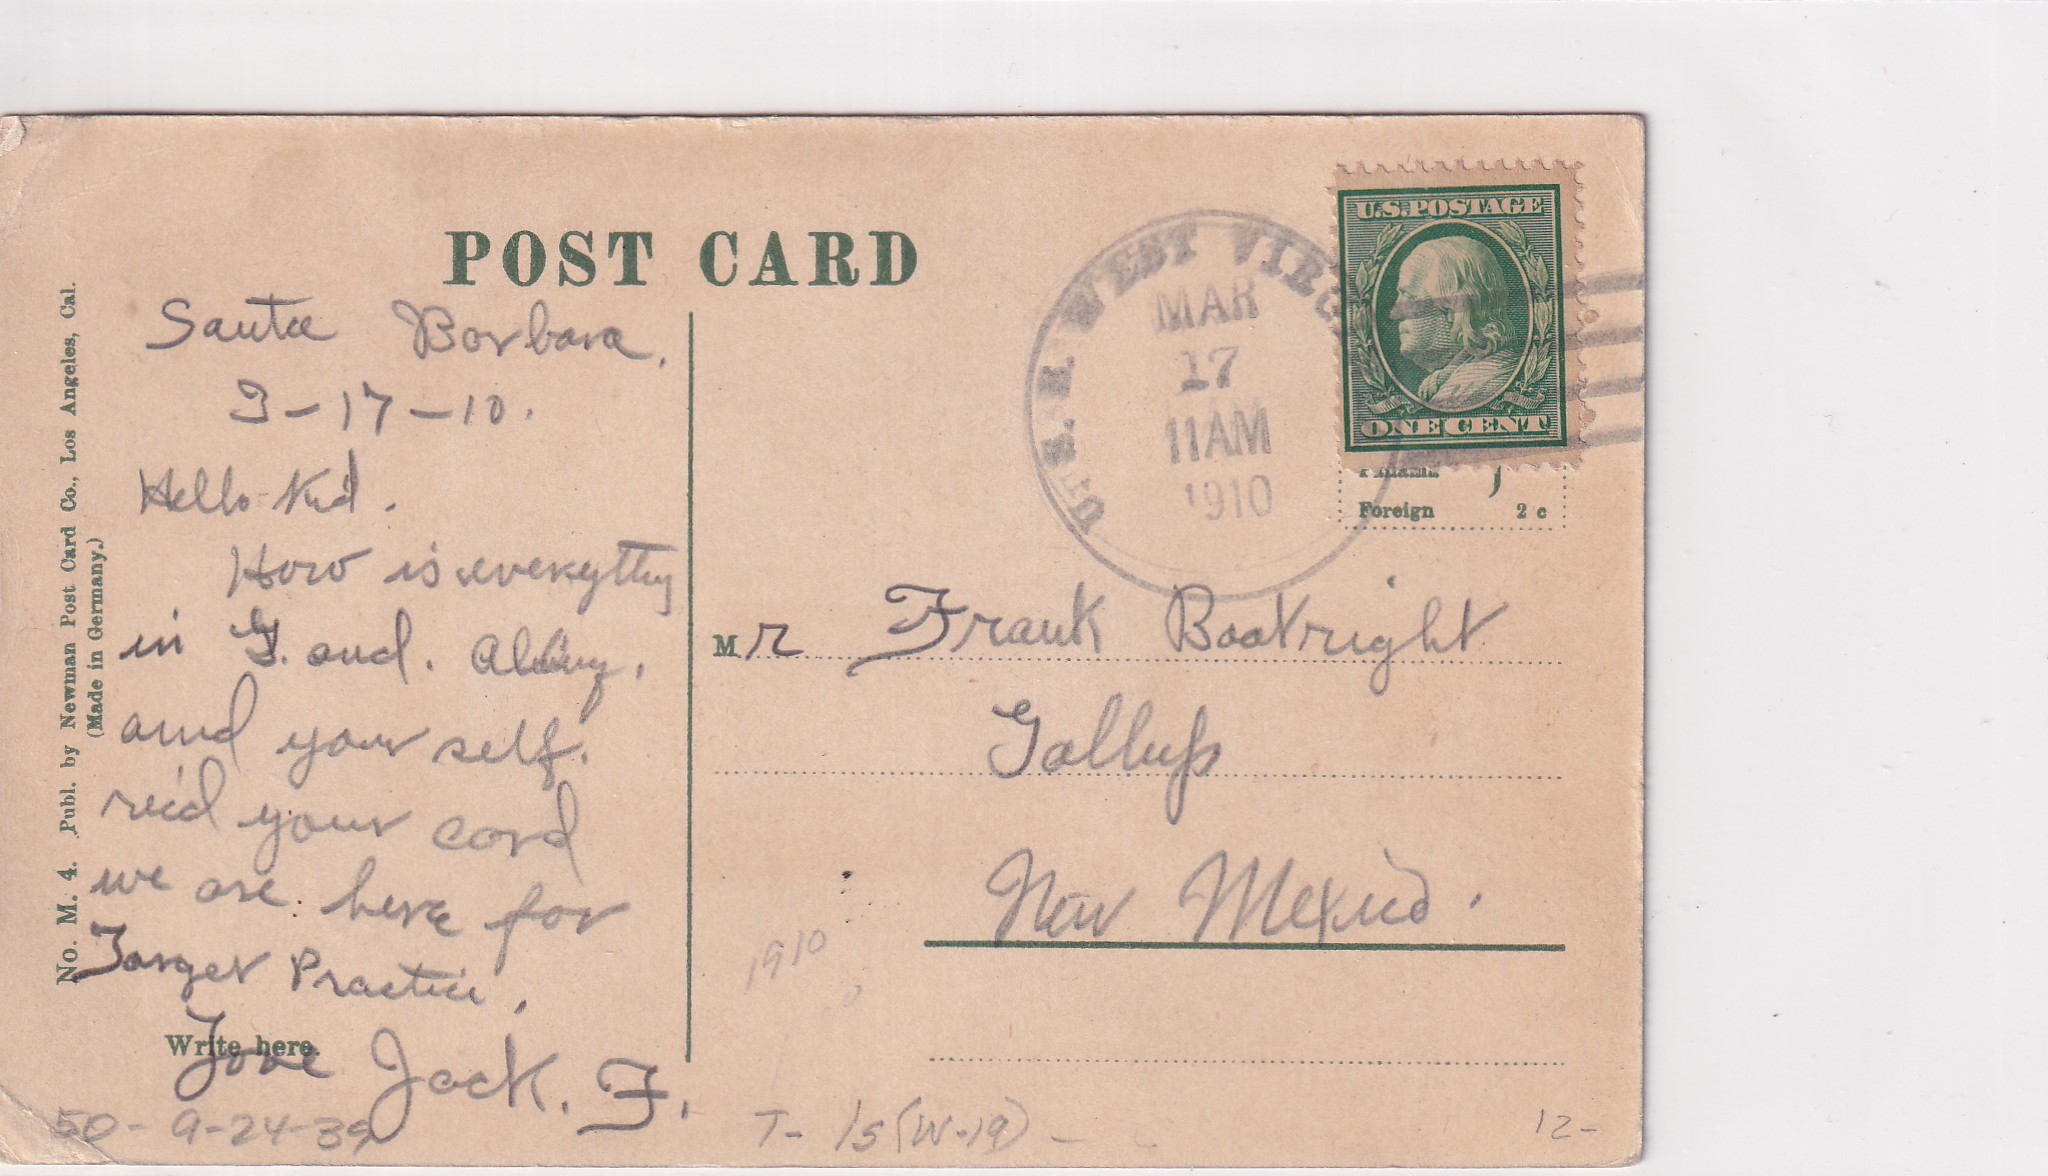 POST CARD
No. M. 4. Publ. by Newman Post Card Co., Los Angeles, Cal.
(Made in Germany.)
Santa Borbara.
3-17-10.
Hello Kid.
How is everythig
in G. and.
amd your self.
rec'd your cord
we are here for
Target Practice.
Write here.
Jack. F.
U.S.S. WEST VIRG
MAR
17
11AM
1910
U.S. POSTAGE
ONE CENT
Foreign 2 c
Mr Frank Boatright
Gallup
New Mexico.
1910
50-9-24-39
T- 15 (W-19) -
12-